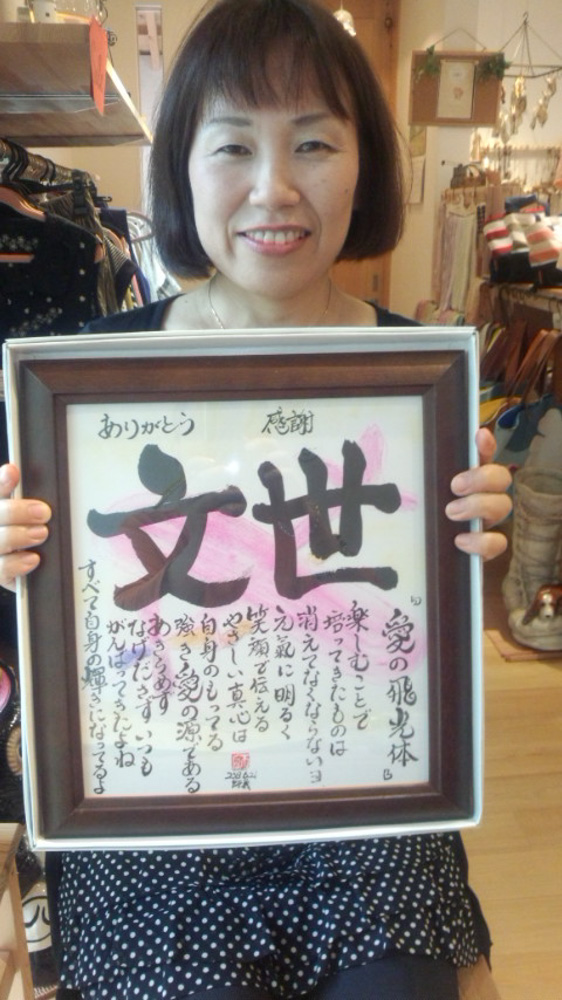 ありがとう 感謝
文世
「愛の飛光体」
楽しむことで
培ってきたものは
消えてなくならないヨ
元氣に明るく
笑顔で伝える
やさしい真心は
自身のもってる
強き愛の源である
あきらめず
なげださず いつも
がんばってきたよね
すべて自身の輝きになってるよ